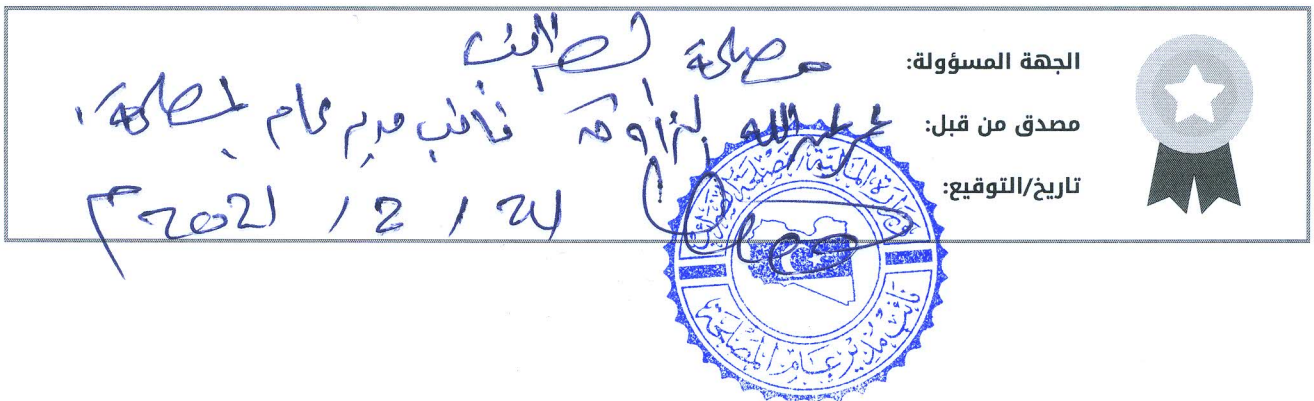 الجهة المسؤولة: مصلحة الضرائب
مصدق من قبل: عبدالله نائب مدير عام المصلحة.
تاريخ/التوقيع: 24 / 2 / 2021 م
وزارة المالية مصلحة الضرائب
نائب مدير عام المصلحة